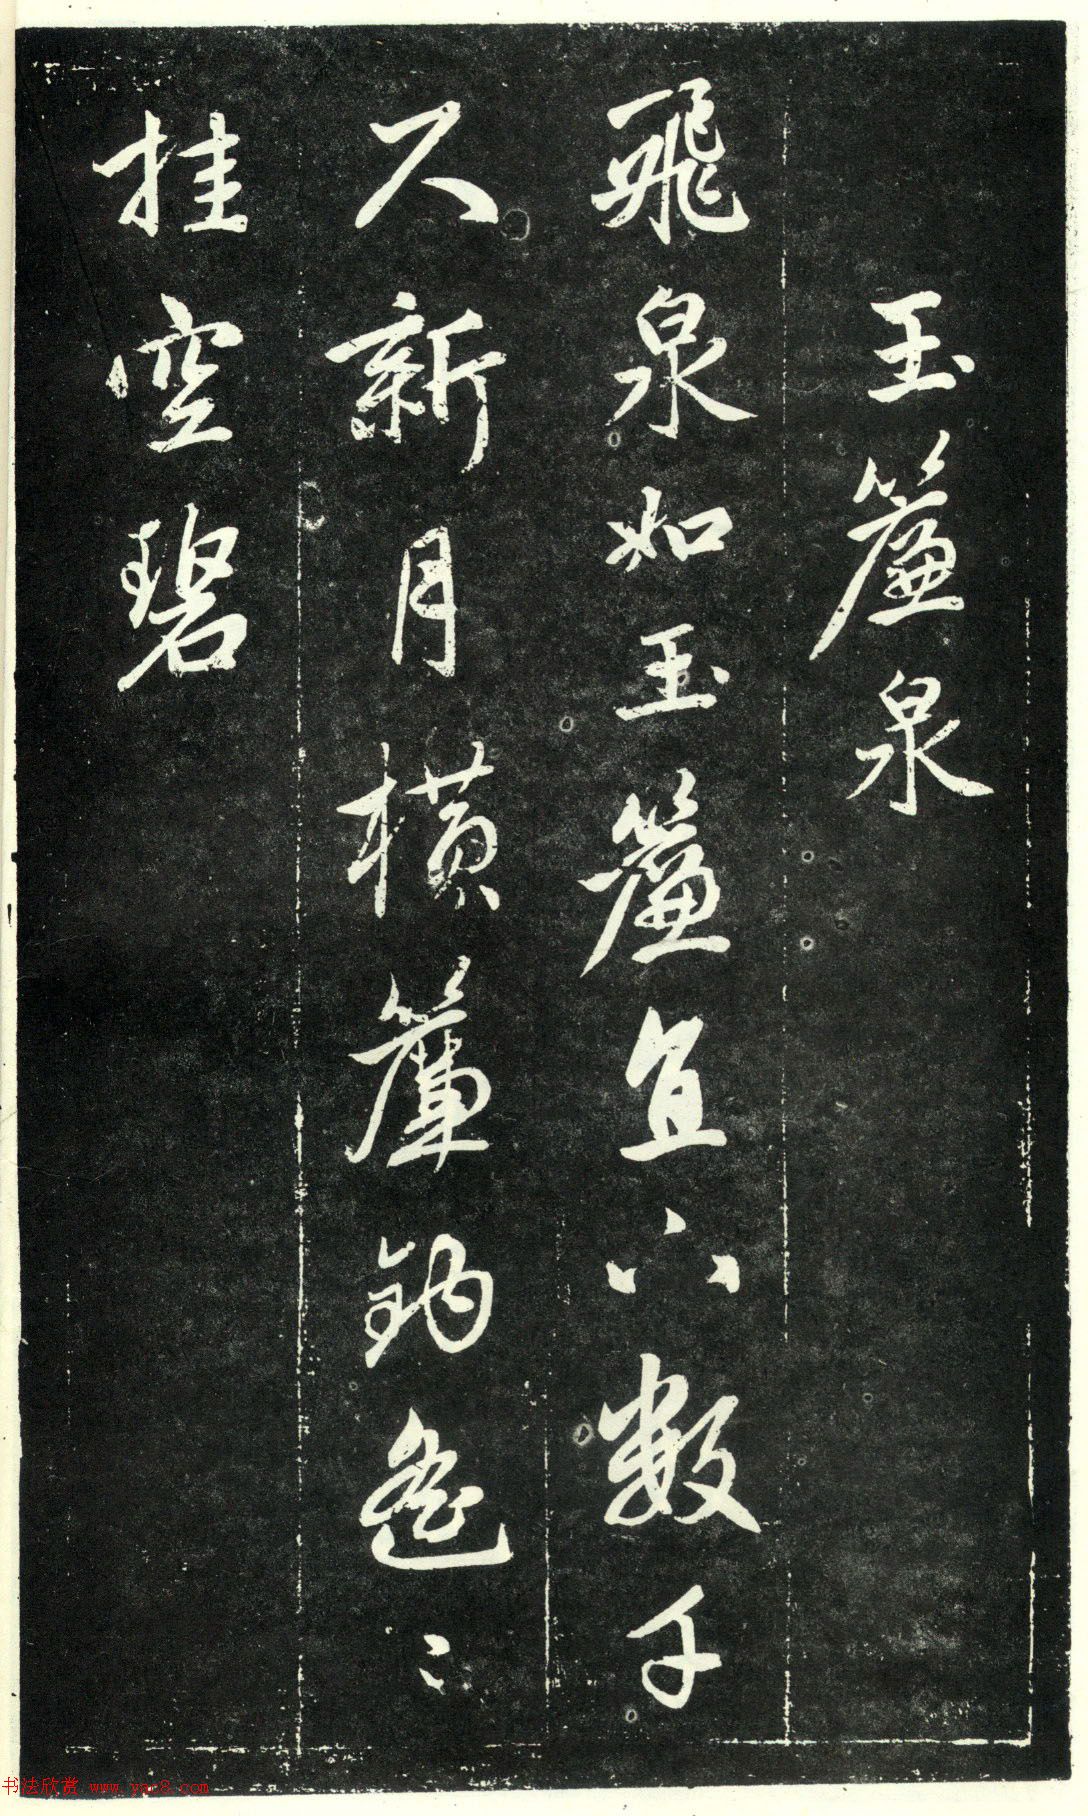 玉簾泉
飛泉如玉簾直下數千
尺新月橫簾鉤遙〻
挂空碧
书法欣赏 www.yac8.com